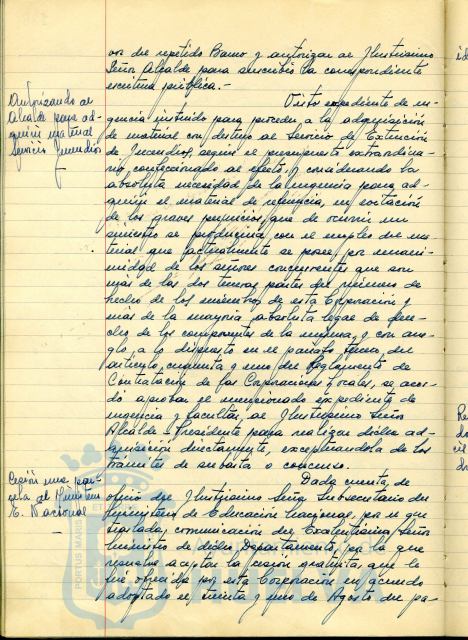 vor de repetido Banco y autorizar al Ilustrísimo
Señor Alcalde para suscribir la correspondiente
escritura pública.-
Autorizando al
Alcalde para ad-
quirir material
Servicio Incendios
Visto expediente de ur-
gencia instruido para proceder a la adquisición
de material con destino al Servicio de Extinción
de Incendios, según el presupuesto extraordina-
rio, confeccionado al efecto, y considerando la
absoluta necesidad de la urgencia para ad-
quirir el material de referencia, en evitación
de los graves perjuicios que de ocurrir un
siniestro se produciría con el empleo del ma-
terial que actualmente se posee, por unani-
midad de los señores concurrentes que son
más de las dos terceras partes del número de
hecho de los miembros de esta Corporación y
más de la mayoría absoluta legal de dere-
cho de los componentes de la misma, y con arre-
glo a lo dispuesto en el párrafo del
artículo cuarenta y uno del Reglamento de
Contratación de las Corporaciones Locales, se acor-
dó aprobar el mencionado expediente de
urgencia y facultar al Ilustrísimo Señor
Alcalde-Presidente para realizar dicha ad-
quisición directamente, exceptuándola de los
trámites de subasta o concurso.
Cesión una par-
cela al Ministerio
E. Nacional
Dada cuenta de
oficio del Ilustrísimo Señor Subsecretario del
Ministerio de Educación Nacional, por el que
traslada comunicación del Excelentísimo Señor
Ministro de dicho Departamento, por la que
resuelve aceptar la cesión gratuita, que le
fué ofrecida por esta Corporación en acuerdo
adoptado el treinta y uno de Agosto del pa-
PORTUS MARIS